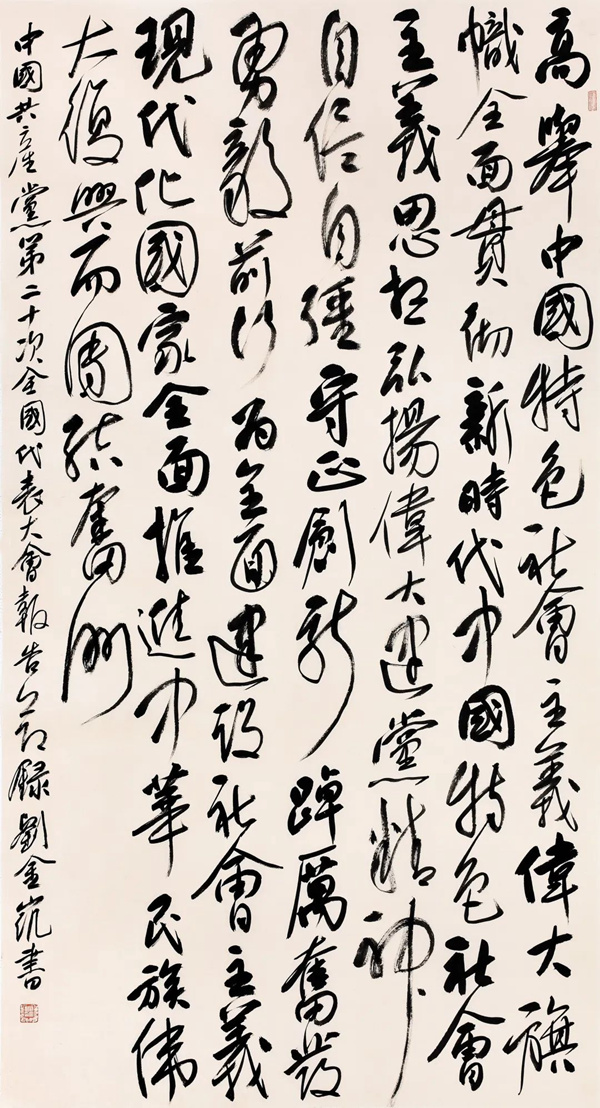 高舉中國特色社會主義偉大旗
幟全面貫彻新時代中國特色社會
主義思想弘揚偉大建黨精神
自信自强守正創新踔厲奮發
勇毅前行為全面建設社會主義
現代化國家全面推進中華民族偉
大復興而團結奮鬥
中國共產黨第二十次全國代表大會報告節錄劉金凱書